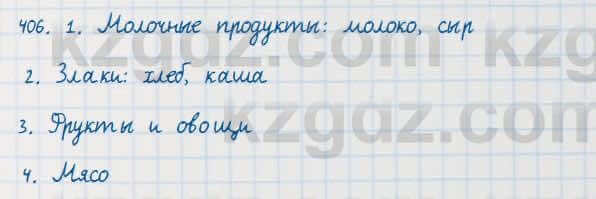 406. 1. Молочные продукты: молоко, сыр
2. Злаки: хлеб, каша
3. Фрукты и овощи
4. Мясо
kzgdz.com